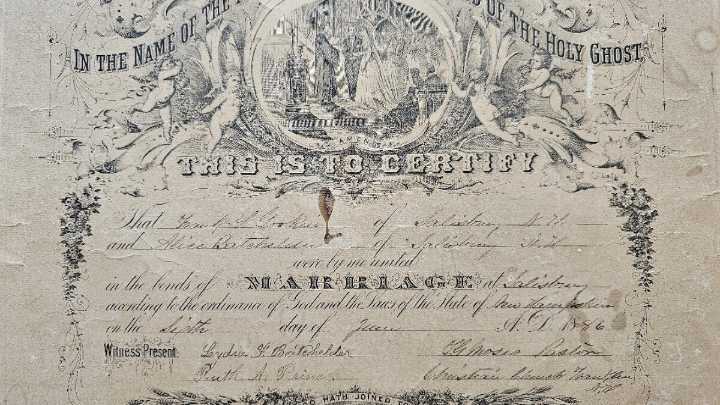 IN THE NAME OF THE
OF THE HOLY GHOST.
THIS IS TO CERTIFY
That Frank of Salisbury N.H.
and Alice Batchelder of Salisbury N.H.
were by me united
in the bonds of MARRIAGE at Salisbury
according to the ordinance of God and the Laws of the State of New Hampshire
on the Sixth day of June A.D. 1886
Witness Present Lydia F. Batchelder
Moses Pastor
Ruth A. Christian Church Franklin
N.H.
HATH JOINED